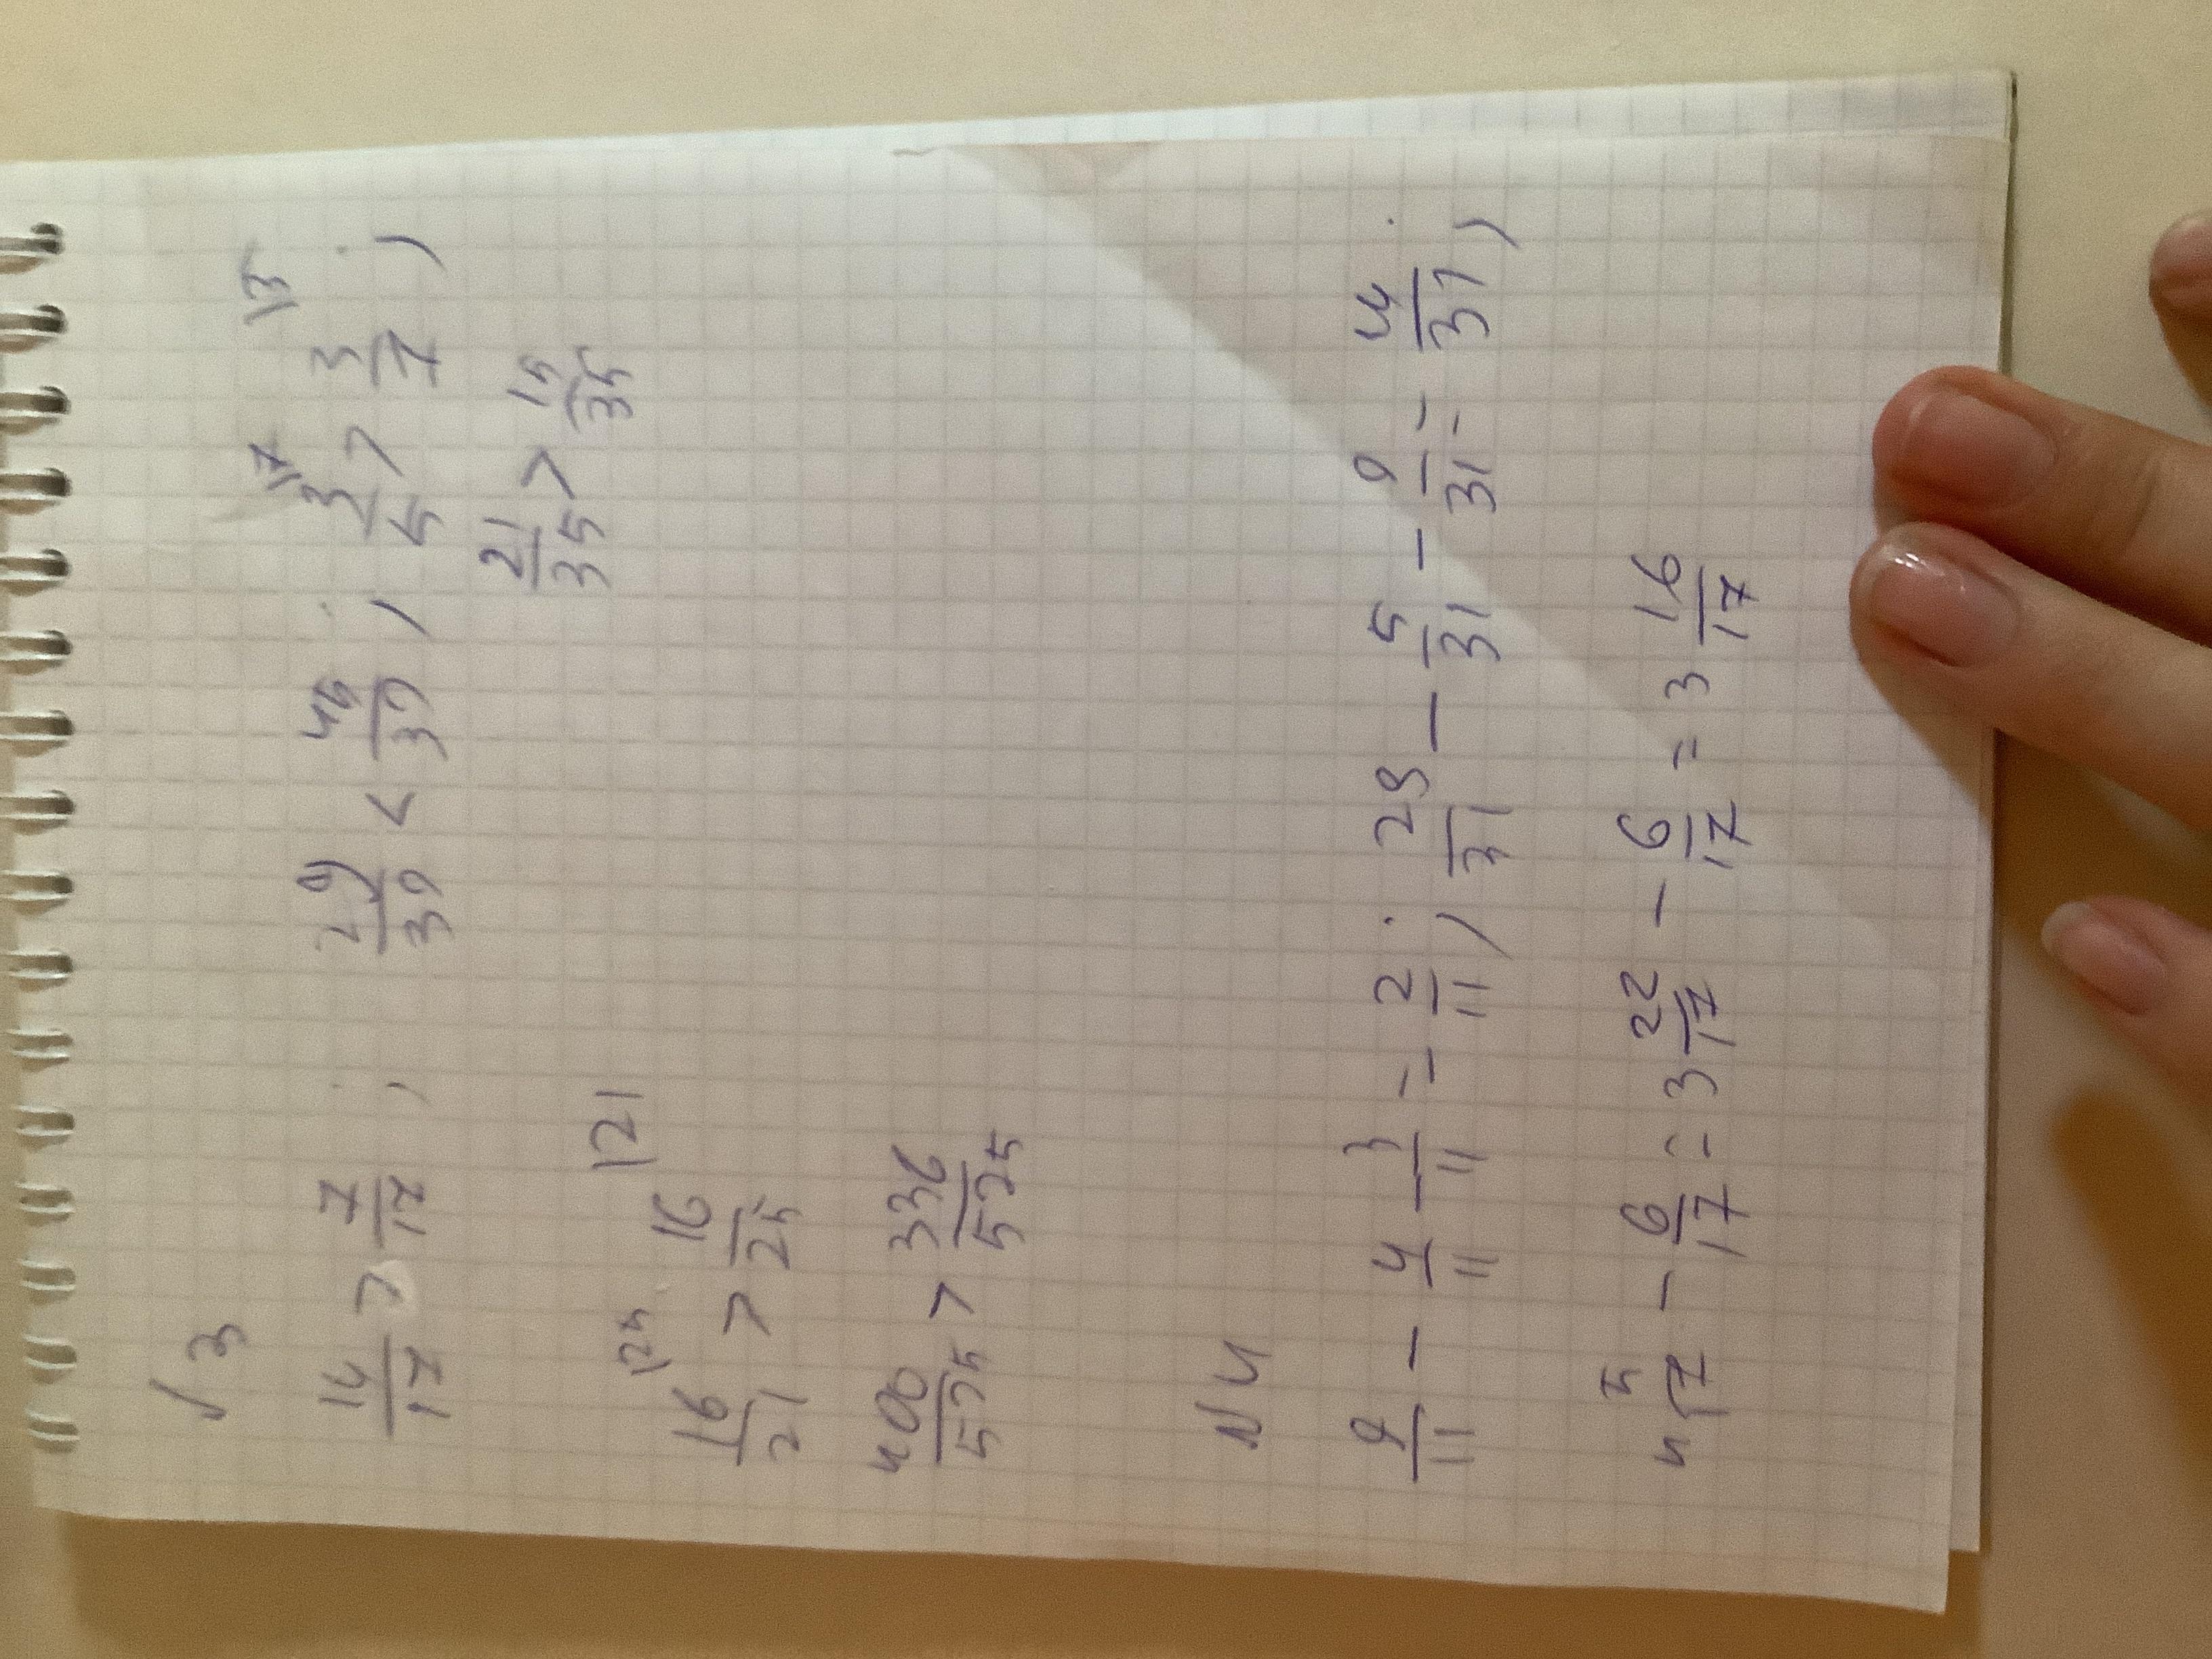 √ 3
14/17 > 7/17 ; 29/39 < 46/39 ; 3/5 |7 > 3/7 |5 ;
21/35 > 15/35
16/21 |25 > 16/25 |21
400/525 > 336/525
N 4
9/11 - 4/11 - 3/11 = 2/11 ; 29/31 - 5/31 - 9/31 = 4/31 ;
4 5/17 - 6/17 = 3 22/17 - 6/17 = 3 16/17